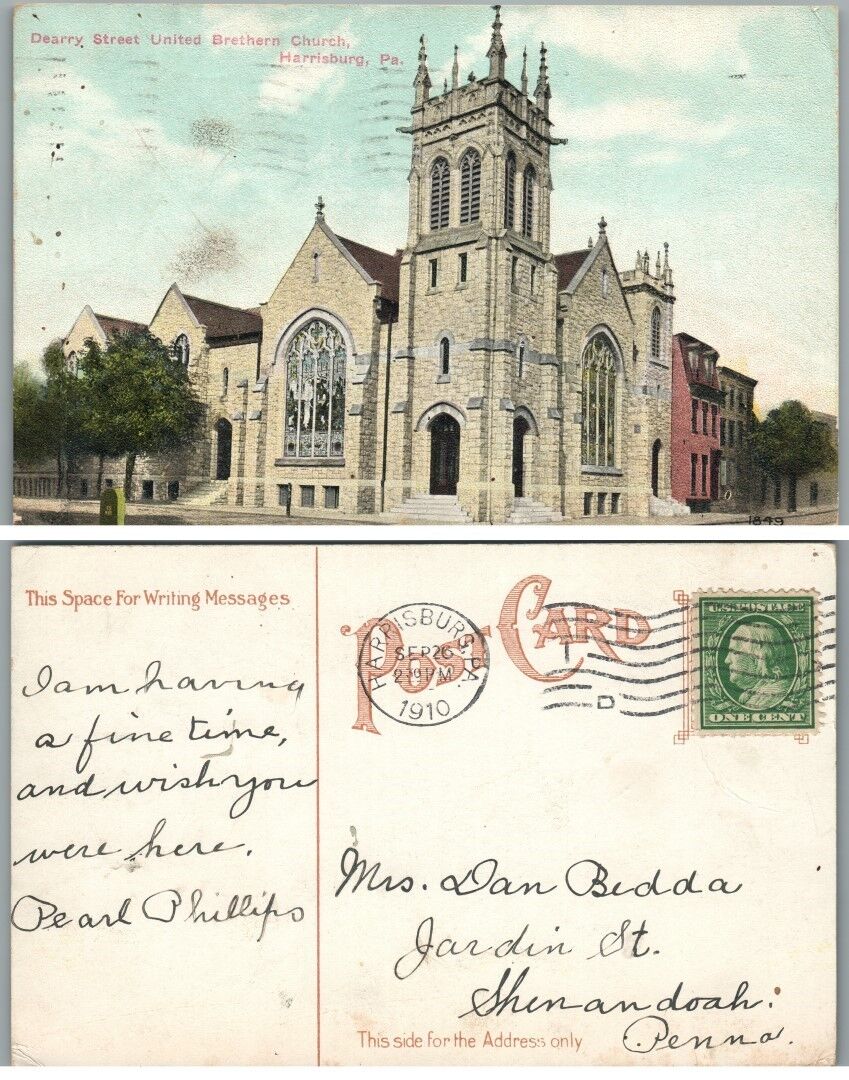 Dearry Street United Brethern Church,
Harrisburg, Pa.
1849
This Space For Writing Messages
POST CARD
HARRISBURG, PA.
SEP 26
1910
D
U.S. POSTAGE
ONE CENT
I am having
a fine time,
and wish you
were here.
Pearl Phillips
Mrs. Dan Bedda
Jardin St.
Shenandoah.
Penna.
This side for the Address only